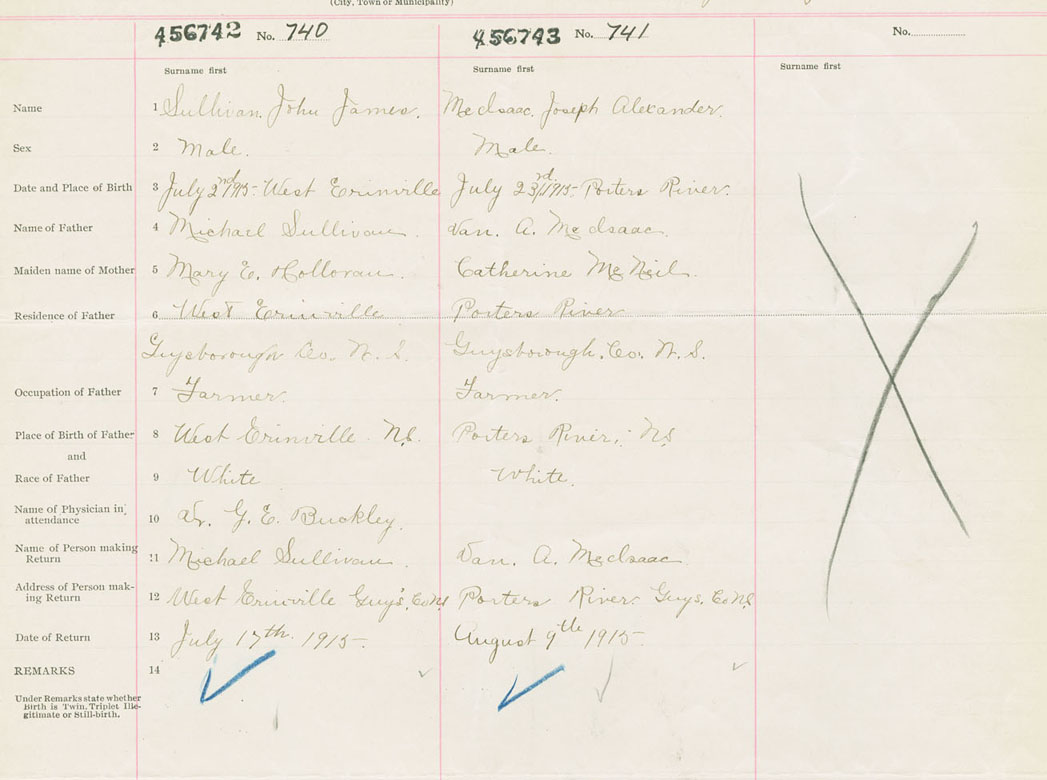 (City, Town or Municipality)
456742 No. 740 456743 No. 741 No.
Surname first Surname first Surname first
Name 1 Sullivan, John James. McIsaac, Joseph Alexander.
Sex 2 Male. Male.
Date and Place of Birth 3 July 2nd 1915 - West Erinville July 23rd 1915 - Porters River.
Name of Father 4 Michael Sullivan. Dan. A. McIsaac.
Maiden name of Mother 5 Mary E. Holloran. Catherine McNeil.
Residence of Father 6 West Erinville Porters River
Guysborough Co. N. S. Guysborough. Co. N. S.
Occupation of Father 7 Farmer. Farmer.
Place of Birth of Father 8 West Erinville. N.S. Porters River, N.S.
and
Race of Father 9 White White.
Name of Physician in
attendance 10 Dr. G. E. Buckley.
Name of Person making
Return 11 Michael Sullivan. Dan. A. McIsaac.
Address of Person mak-
ing Return 12 West Erinville Guys. Co NS Porters River. Guys. Co NS
Date of Return 13 July 17th 1915 - August 9th 1915.
REMARKS 14
Under Remarks state whether
Birth is Twin, Triplet Ille-
gitimate or Still-birth.